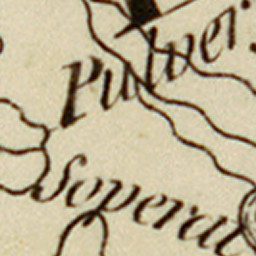 Pulwer
Seperat